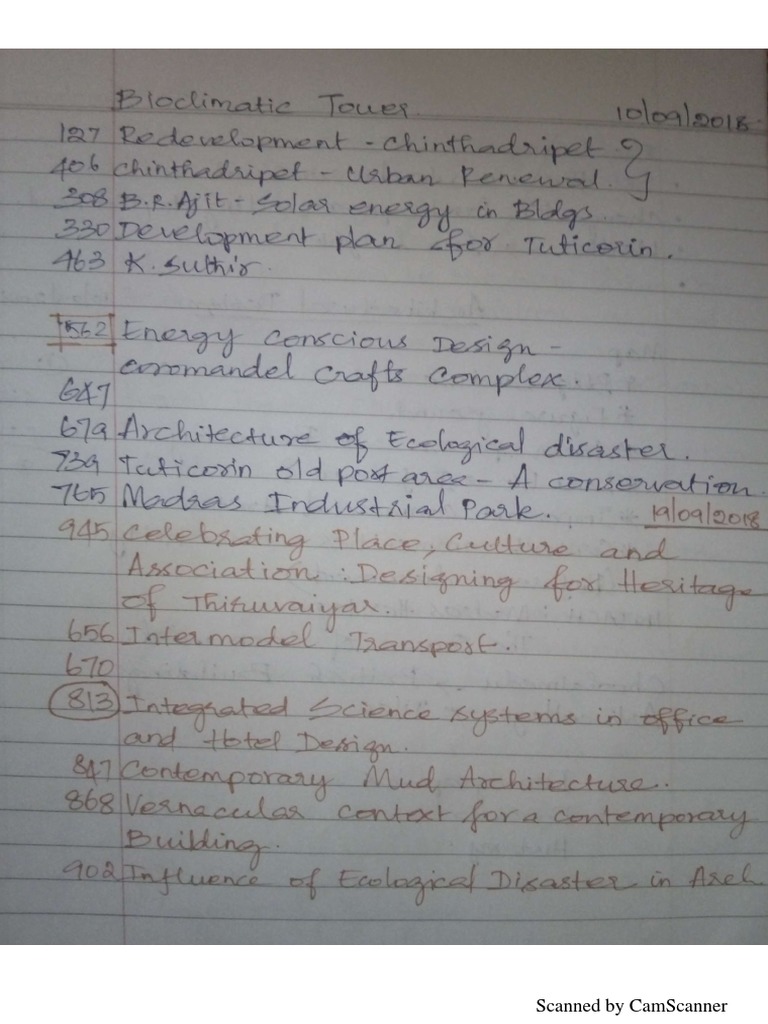 Bioclimatic Tower. 10/09/2018.
127 Redevelopment - Chinthadripet }
406 Chinthadripet - Urban Renewal. }
308 B.R.Ajit - Solar energy in Bldgs.
330 Development plan for Tuticorin.
463 K. Suthir.
562 Energy conscious Design -
coromandel crafts complex.
647
679 Architecture of Ecological disaster.
739 Tuticorin old port area - A conservation
765 Madras Industrial Park. 19/09/2018
945 Celebrating Place, Culture and
Association : Designing for Heritage
of Thiruvaiyar.
656 Intermodel Transport.
670
813 Integrated Science systems in office
and Hotel Design.
847 Contemporary Mud Architecture.
868 Vernacular context for a contemporary
Building.
902 Influence of Ecological Disaster in Arch
Scanned by CamScanner